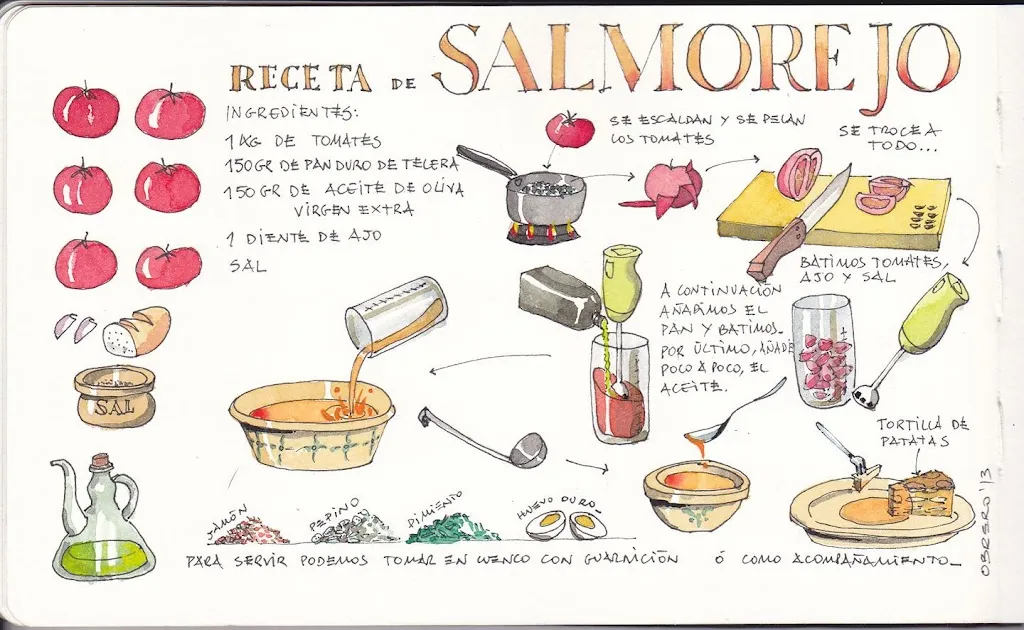 RECETA DE SALMOREJO
INGREDIENTES:
1 KG DE TOMATES
150 GR DE PAN DURO DE TELERA
150 GR DE ACEITE DE OLIVA
VIRGEN EXTRA
1 DIENTE DE AJO
SAL
SE ESCALDAN Y SE PELAN
LOS TOMATES
SE TROCEA
TODO...
BATIMOS TOMATES,
AJO Y SAL
A CONTINUACIÓN
AÑADIMOS EL
PAN Y BATIMOS.
POR ÚLTIMO, AÑADE
POCO A POCO, EL
ACEITE.
SAL
TORTILLA DE
PATATAS
JAMÓN
PEPINO
PIMIENTO
HUEVO DURO
PARA SERVIR PODEMOS TOMAR EN CUENCO CON GUARNICIÓN Ó COMO ACOMPAÑAMIENTO
OBRERO '13